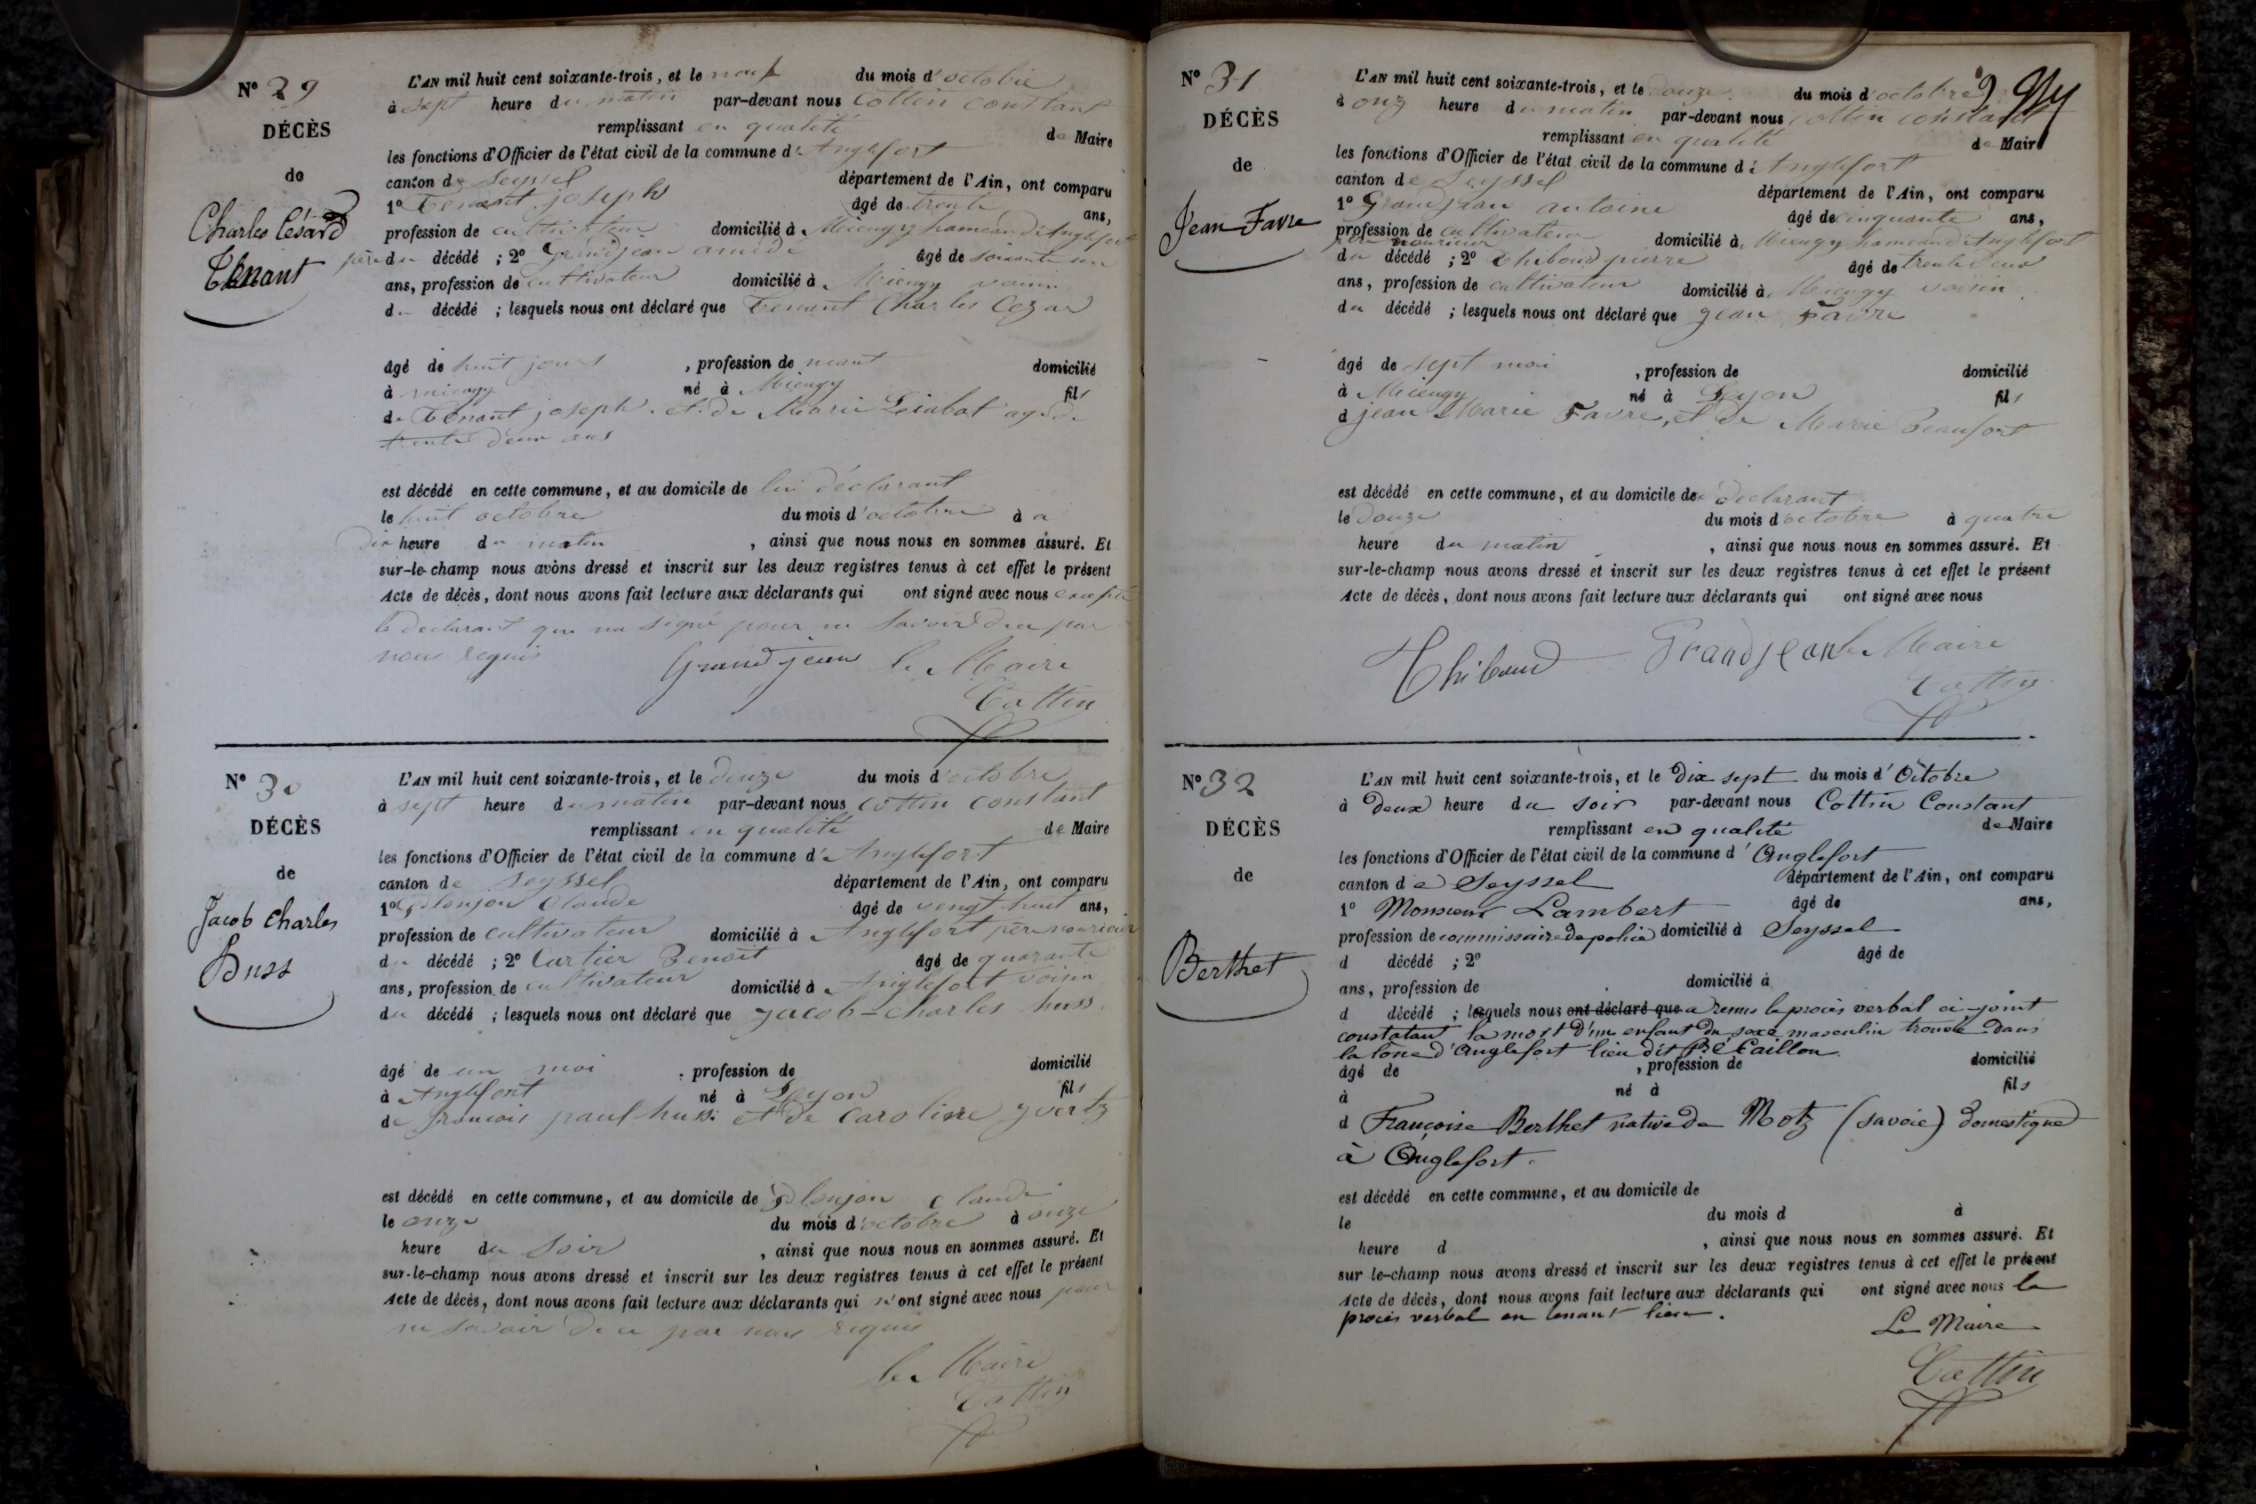 N° 29
DÉCÈS
de
Charles Césard
Ténant
L'AN mil huit cent soixante-trois, et le neuf du mois d'octobre
à sept heure du matin par-devant nous Cottin Constant
remplissant en qualité de Maire
les fonctions d'Officier de l'état civil de la commune d'Anglefort
canton de Seyssel département de l'Ain, ont comparu
1° Tenant joseph âgé de trente ans,
profession de cultivateur domicilié à Mieugy hameau d'Anglefort
père du décédé ; 2° Grandjean amédé âgé de soixante un
ans, profession de cultivateur domicilié à Mieugy voisin
du décédé ; lesquels nous ont déclaré que Tenant Charles Cezar
âgé de huit jours , profession de neant domicilié
à mieugy né à Mieugy fils
de Tenant joseph et de Marie agé de
trente deux ans
est décédé en cette commune, et au domicile de lui déclarant
le huit octobre du mois d'octobre à a
dix heure du matin , ainsi que nous nous en sommes assuré. Et
sur-le-champ nous avons dressé et inscrit sur les deux registres tenus à cet effet le présent
Acte de décès, dont nous avons fait lecture aux déclarants qui ont signé avec nous excepté
le declarant qui na signé pour ne savoir de ce par
nous requis Grandjean le Maire
Cottin
N° 30
DÉCÈS
de
Jacob Charles
Buss
L'AN mil huit cent soixante-trois, et le douze du mois d'octobre
à sept heure du matin par-devant nous Cottin Constant
remplissant en qualité de Maire
les fonctions d'Officier de l'état civil de la commune d'Anglefort
canton de Seyssel département de l'Ain, ont comparu
1° Plonjon Claude âgé de vengt huit ans,
profession de cultivateur domicilié à Anglefort père nouricier
du décédé ; 2° Cartier Benoit âgé de quarante
ans, profession de cultivateur domicilié à Anglefort voisin
du décédé ; lesquels nous ont déclaré que jacob-charles huss
âgé de un moi , profession de domicilié
à Anglefort né à Leyon fils
de francois paul huss et de Caroline yvertz
est décédé en cette commune, et au domicile de Plonjon Claude
le onze du mois d'octobre à onze
heure du soir , ainsi que nous nous en sommes assuré. Et
sur-le-champ nous avons dressé et inscrit sur les deux registres tenus à cet effet le présent
Acte de décès, dont nous avons fait lecture aux déclarants qui n'ont signé avec nous pour
ne savoir de ce par nous requis
le Maire
Cottin
N° 31
DÉCÈS
de
Jean Favre
L'AN mil huit cent soixante-trois, et le douze du mois d'octobre
à onz heure du matin par-devant nous Cottin Constant
remplissant en qualité de Maire
les fonctions d'Officier de l'état civil de la commune d'Anglefort
canton de Seyssel département de l'Ain, ont comparu
1° Grandjean antoine âgé de cinquante ans,
profession de cultivateur domicilié à Mieugy hameau d'Anglefort
père nouricier
du décédé ; 2° thiboud pierre âgé de trente deux
ans, profession de cultivateur domicilié à Mieugy voisin
du décédé ; lesquels nous ont déclaré que jean Favre
âgé de sept moi , profession de domicilié
à Mieugy né à Leyon fils
d jean Marie Favre, et de Marie Beaufort
est décédé en cette commune, et au domicile de déclarant
le douze du mois d'octobre à quatre
heure du matin , ainsi que nous nous en sommes assuré. Et
sur-le-champ nous avons dressé et inscrit sur les deux registres tenus à cet effet le présent
Acte de décès, dont nous avons fait lecture aux déclarants qui ont signé avec nous
Thiboud Grandjean le Maire
Cottin
N° 32
DÉCÈS
de
Berthet
L'AN mil huit cent soixante-trois, et le Dix sept du mois d'Octobre
à Deux heure du soir par-devant nous Cottin Constant
remplissant en qualité de Maire
les fonctions d'Officier de l'état civil de la commune d'Anglefort
canton de Seyssel département de l'Ain, ont comparu
1° Monsieur Lambert âgé de ans,
profession de commissaire de police domicilié à Seyssel
d décédé ; 2° âgé de
ans, profession de domicilié à
d décédé ; lequels nous ont déclaré que a remis le procès verbal ci-joint
constatant la mort d'un enfant du sexe masculin trouvé dans
la lone d'Anglefort lieu dit Caillon
âgé de , profession de domicilié
à né à fils
d Françoise Berthet native de Motz (savoie) domestique
à Anglefort.
est décédé en cette commune, et au domicile de
le du mois d à
heure d , ainsi que nous nous en sommes assuré. Et
sur le-champ nous avons dressé et inscrit sur les deux registres tenus à cet effet le présent
Acte de décès, dont nous avons fait lecture aux déclarants qui ont signé avec nous le
procès verbal en tenant lieu.
Le Maire
Cottin